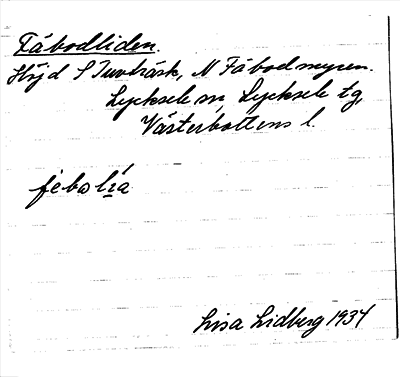 Fäbodliden.
Höjd S Tuvträsk, N Fäbodmyren.
Lycksele sn Lycksele tg,
Västerbottens l.
Lisa Lidberg 1934